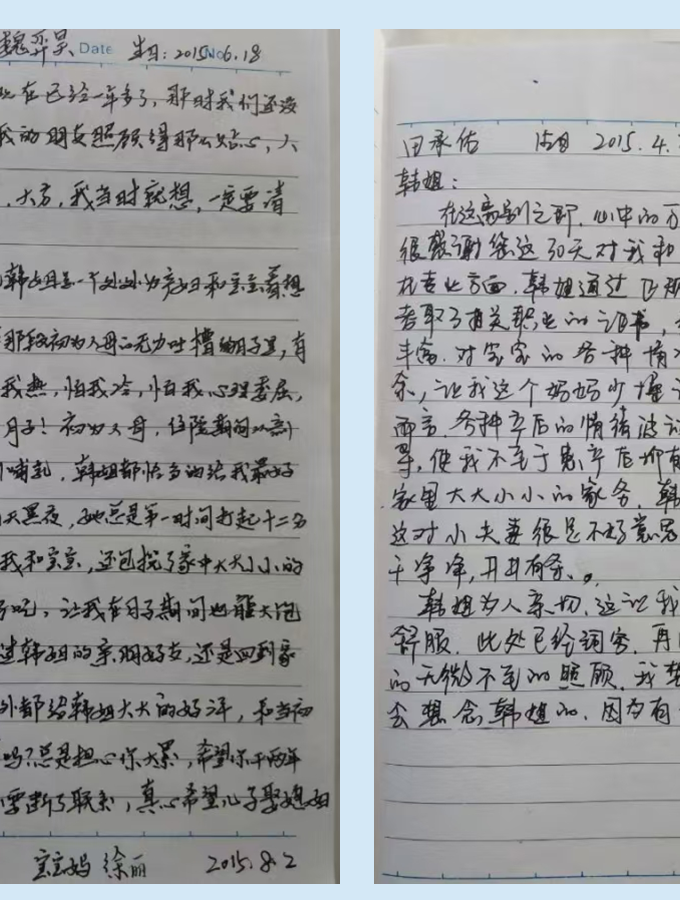 魏弈昊 Date 生日：2015 No 6.18
在已经一年多了，那时我们还没
我的朋友照顾得那么贴心，大
，大方，我当时就想，一定要请
韩姐是一个处处为产妇和宝宝着想
那段初为人母的无力吐槽的日子里，有
我热，怕我冷，怕我心理委屈，
月子！初为人母，住院期间从高
哺乳，韩姐都恰当的给我最好
天黑夜，她总是第一时间打起十二分
我和宝宝，还包揽了家中大大小小的
了吧，让我在月子期间也能大饱
韩姐的亲朋好友，还是回到家
外都给韩姐大大的好评，和当初
吗？总是担心你太累，希望你干两年
要断了联系，真心希望儿子娶媳妇
宝宝妈 徐丽 2015.8.2
田承佑 2015.4.
韩姐：
在这离别之即，心中的万
很感谢您这30天对我和
在专业方面，韩姐通过
考取了相关职业的证书，
丰富，对宝宝的各种情况
余，让我这个妈妈少操
而言，各种产后的情绪波
导，使我不至于患产后抑有
家里大大小小的家务，韩
这对小夫妻很是不好意思
干净净，井井有条。
韩姐为人亲切，这让我
舒服，此处已经词穷，再
的无微不至的照顾，我想
会想念韩姐的，因为有